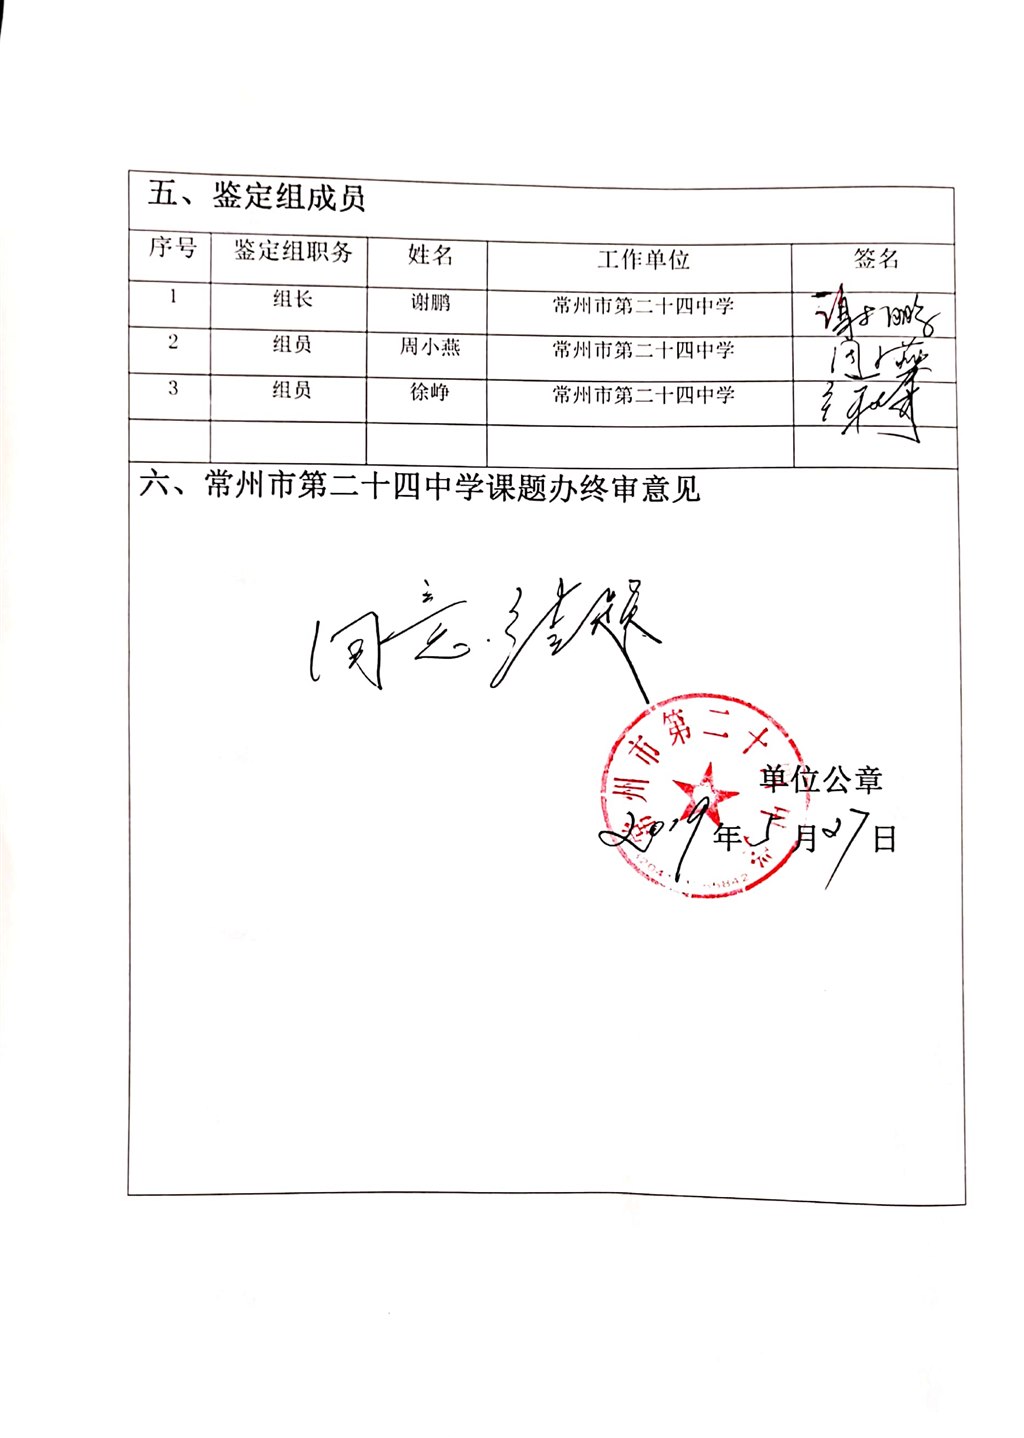 五、鉴定组成员
序号 鉴定组职务 姓名 工作单位 签名
1 组长 谢鹏 常州市第二十四中学 谢鹏
2 组员 周小燕 常州市第二十四中学 周小燕
3 组员 徐峥 常州市第二十四中学
六、常州市第二十四中学课题办终审意见
同意结题
常州市第二十四中学
单位公章
2019年5月27日